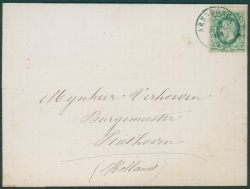 Mynheer Verhoeven
Burgemeester
Eindhoven
(Holland)